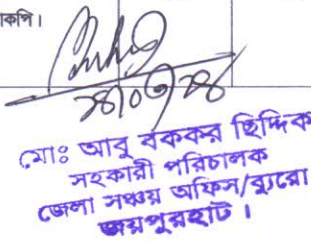 কপি।
২৪/০৩/২৪
মোঃ আবু বককর ছিদ্দিক
সহকারী পরিচালক
জেলা সঞ্চয় অফিস/ব্যুরো
জয়পুরহাট।